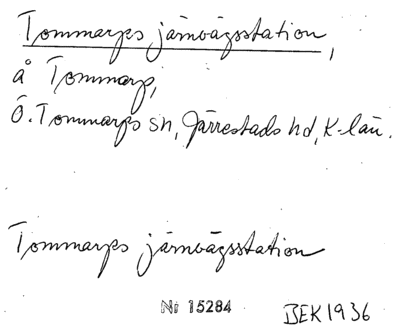 Tommarps järnvägsstation,
å Tommarp,
Ö. Tommarps sn, Järrestads hd, K-län.
Tommarps järnvägsstation
Nr 15284 BEK 1936